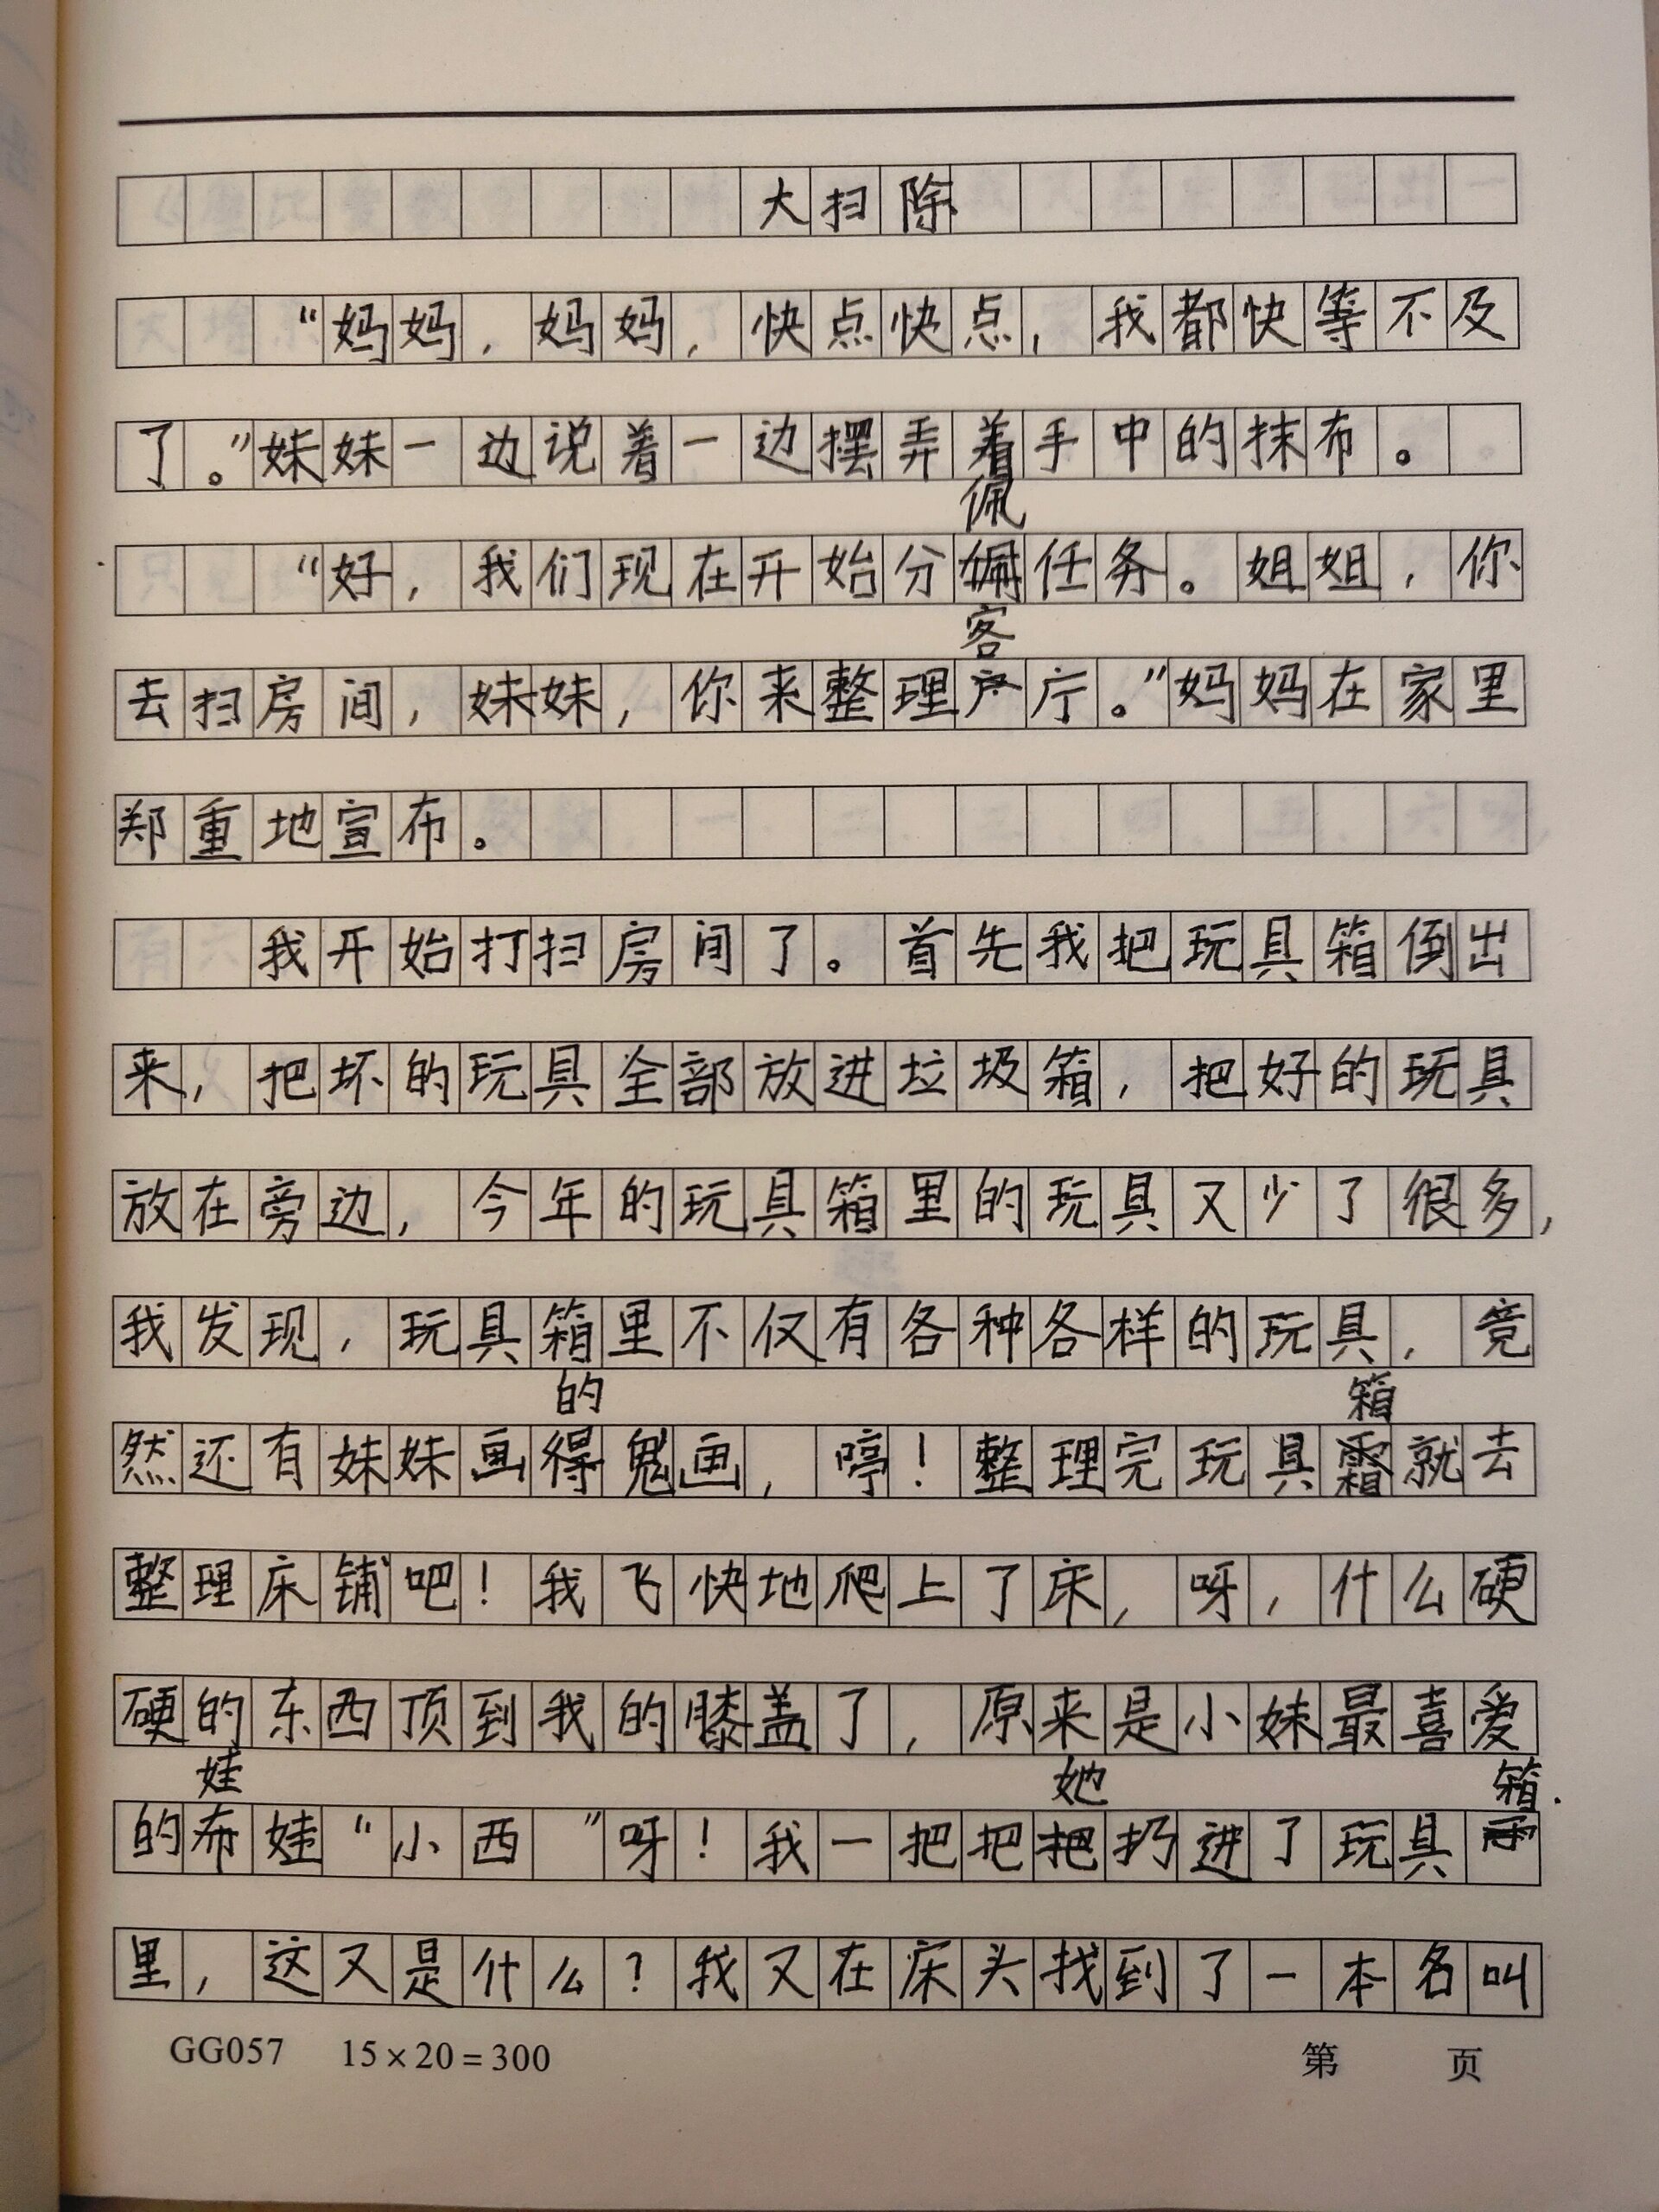 大扫除
“妈妈，妈妈，快点快点，我都快等不及
了。”妹妹一边说着一边摆弄着手中的抹布。
佩
“好，我们现在开始分任务。姐姐，你
客
去扫房间，妹妹，你来整理户厅。”妈妈在家里
郑重地宣布。
我开始打扫房间了。首先我把玩具箱倒出
来，把坏的玩具全部放进垃圾箱，把好的玩具
放在旁边，今年的玩具箱里的玩具又少了很多，
我发现，玩具箱里不仅有各种各样的玩具，竟
的 箱
然还有妹妹画得鬼画，哼！整理完玩具霜就去
整理床铺吧！我飞快地爬上了床，呀，什么硬
硬的东西顶到我的膝盖了，原来是小妹最喜爱
娃 她 箱.
的布娃“小西”呀！我一把把把扔进了玩具
里，这又是什么？我又在床头找到了一本名叫
GG057 15×20=300 第 页